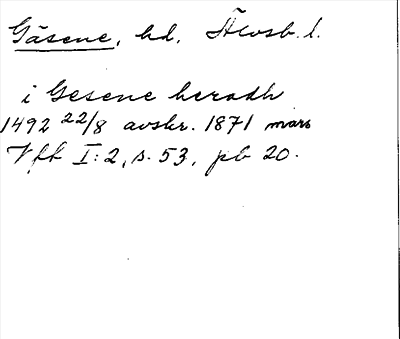 Gäsene, hd, Älvsb. l.
i Gesene heradh
1492 22/8 avskr. 1871 mars
Vfk I:2, s. 53, pb 20.